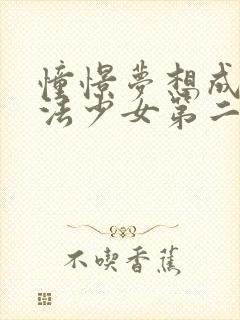 憧憬夢想成
法少女第二
不喫香蕉